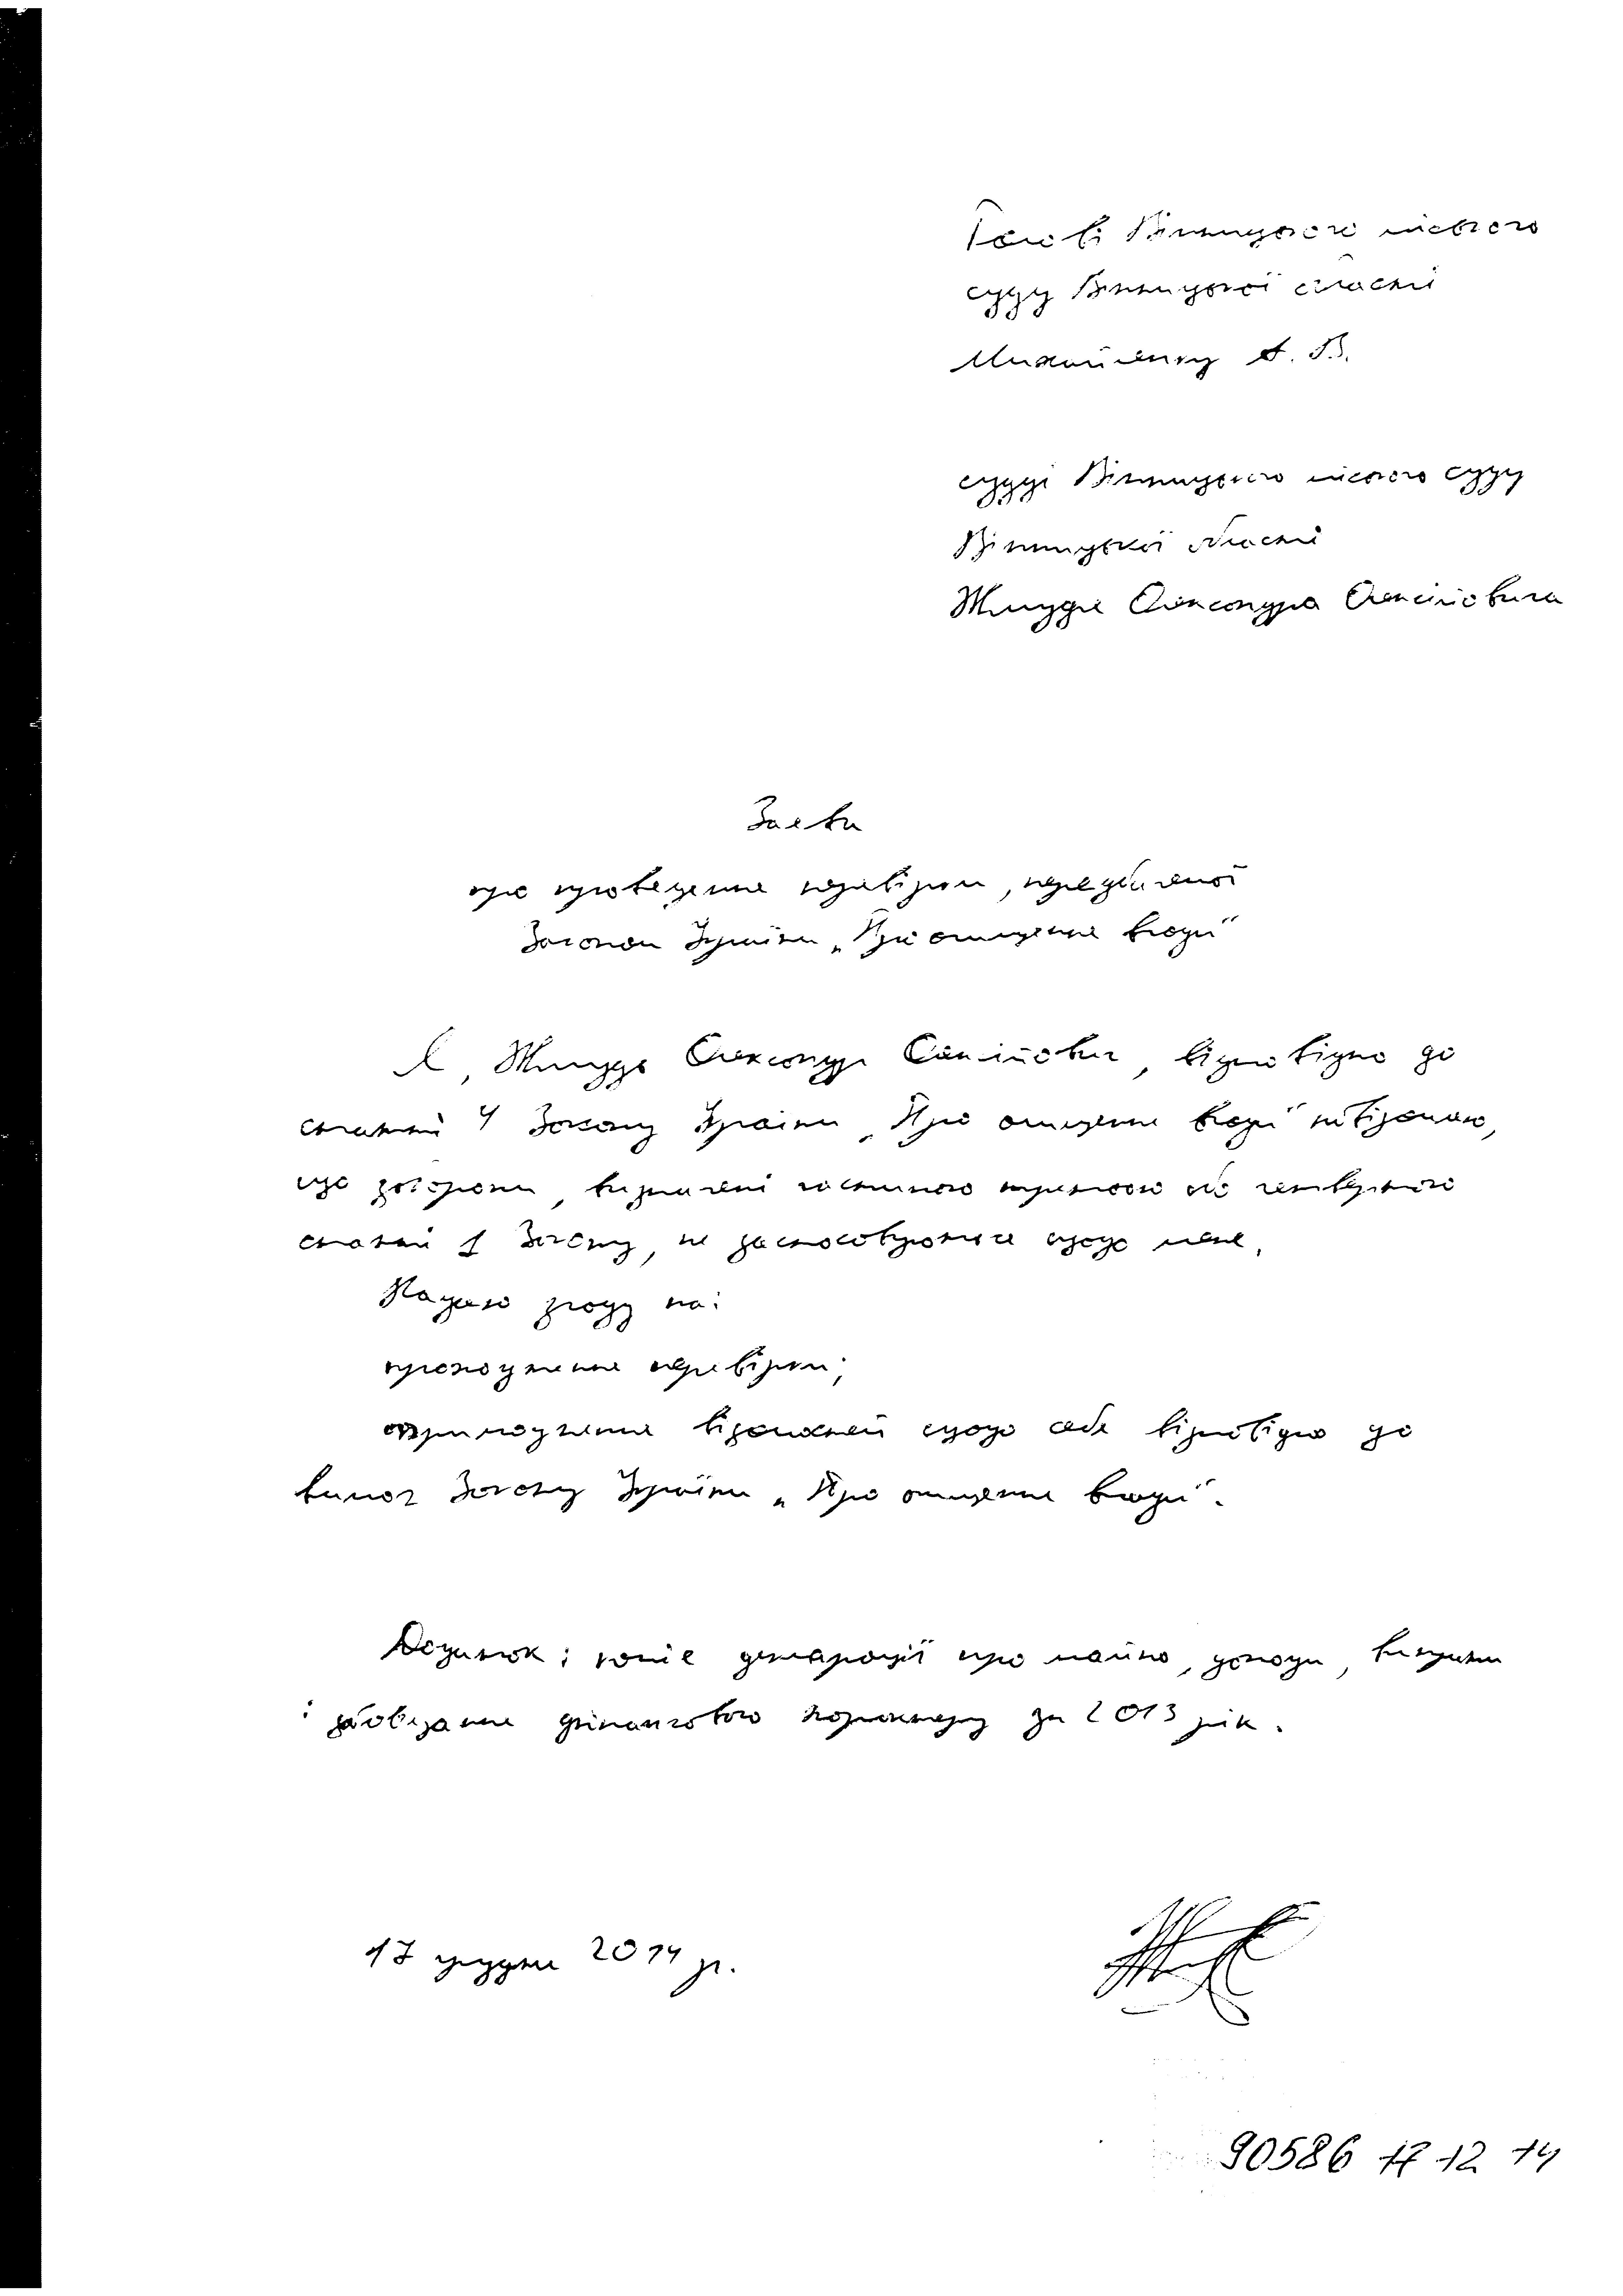 Голові Вінницького міського
суду Вінницької області
Михайленку А. В.
судді Вінницького міського суду
Вінницької області
Жмудя Олександра Олексійовича
Заява
про проведення перевірки, передбаченої
Законом України „Про очищення влади"
Я, Жмудь Олександр Олексійович, відповідно до
статті 4 Закону України „Про очищення влади" повідомляю,
що заборони, визначені частиною третьою або четвертою
статті 1 Закону, не застосовуються щодо мене.
Надаю згоду на:
проходження перевірки;
оприлюднення відомостей щодо себе відповідно до
вимог Закону України „Про очищення влади".
Додаток: копія декларації про майно, доходи, витрати
і зобов'язання фінансового характеру за 2013 рік.
17 грудня 2014 р.
90586 17 12 14